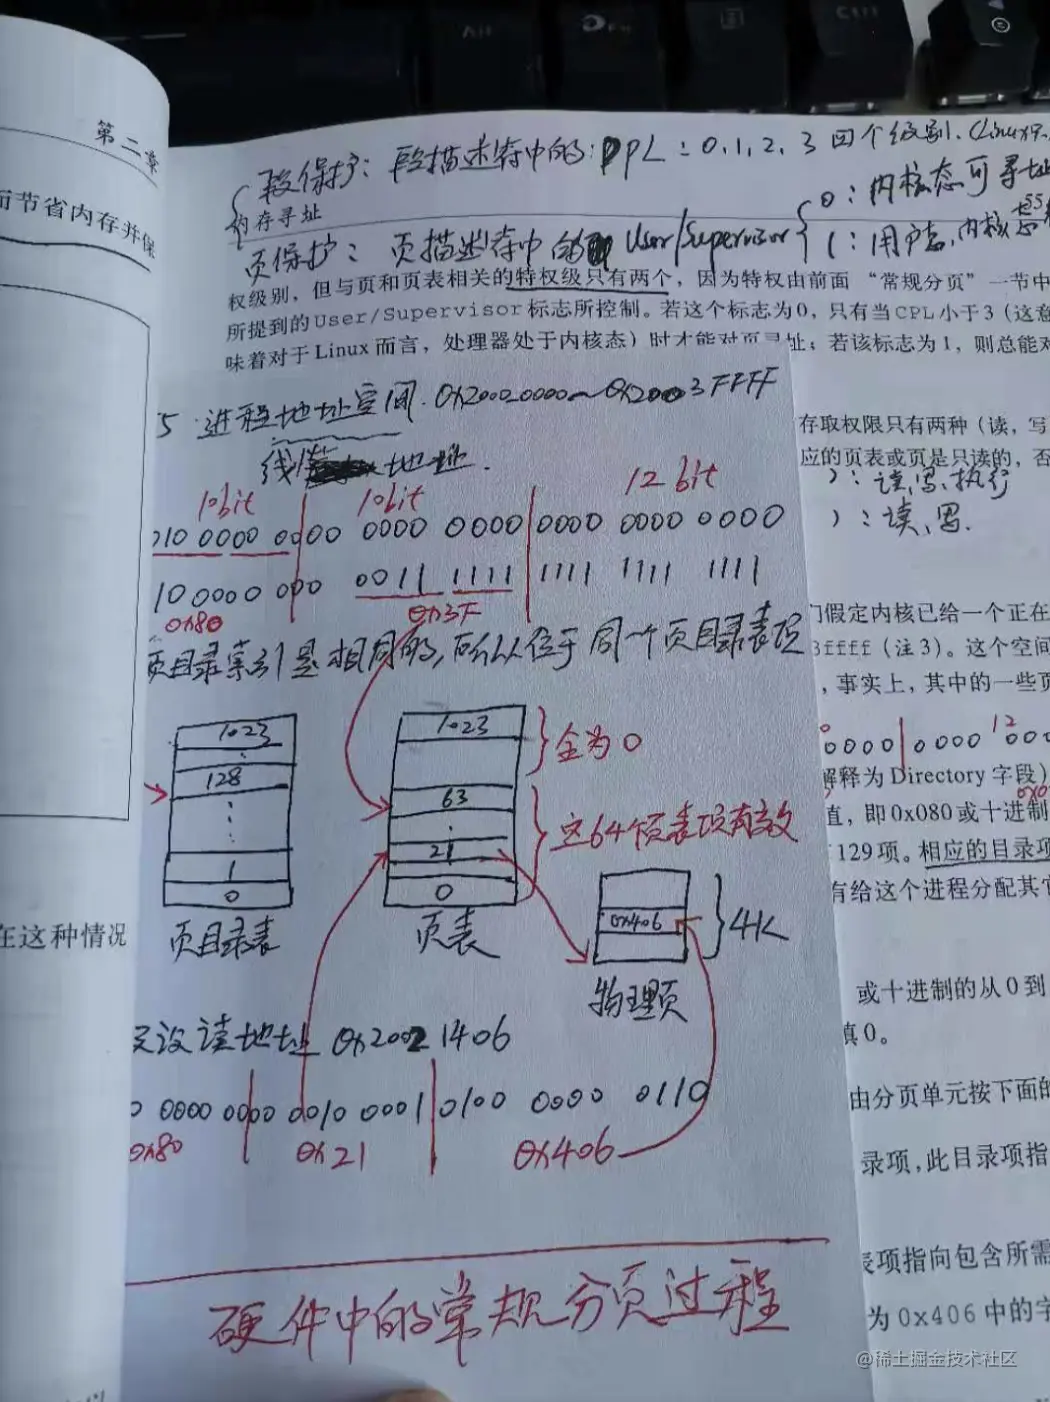 第二章
而节省内存并保
在这种情况
段保护：段描述符中的：DPL：0,1,2,3 四个级别.(Linux
内存寻址
页保护：页描述符中的 User/Supervisor
0：内核态可寻址
1：用户态、内核态
权级别，但与页和页表相关的特权级只有两个，因为特权由前面“常规分页”一节中
所提到的User/Supervisor标志所控制。若这个标志为0，只有当CPL小于3（这意
味着对于Linux而言，处理器处于内核态）时才能对页寻址；若该标志为1，则总能对
存取权限只有两种（读，写
应的页表或页是只读的，否
)：读、写、执行
)：读、写.
5 进程地址空间. 0x20020000~0x2003FFFF
线 地址.
10bit 10bit 12bit
010 0000 0000 00 0000 0000 0000 0000 0000
10 0000 000 0011 1111 1111 1111 1111
0x80 0x3F
页目录索引是相同的,所以位于同一个页目录表项
们假定内核已给一个正在
3ffff（注3）。这个空间
，事实上，其中的一些页
0000 0000 000
12
解释为Directory字段)
值，即0x080或十进制
129项。相应的目录项
有给这个进程分配其它
或十进制的从0到
填0。
由分页单元按下面的
录项，此目录项指
表项指向包含所需
为0x406中的字
1023
128
1
0
页目录表
1023
63
21
0
页表
全为0
这64个页表项有效
0x406
4K
物理页
设读地址 0x20021406
0 0000 0000 0010 0001 0100 0000 0110
0x80 0x21 0x406
硬件中的常规分页过程
@稀土掘金技术社区